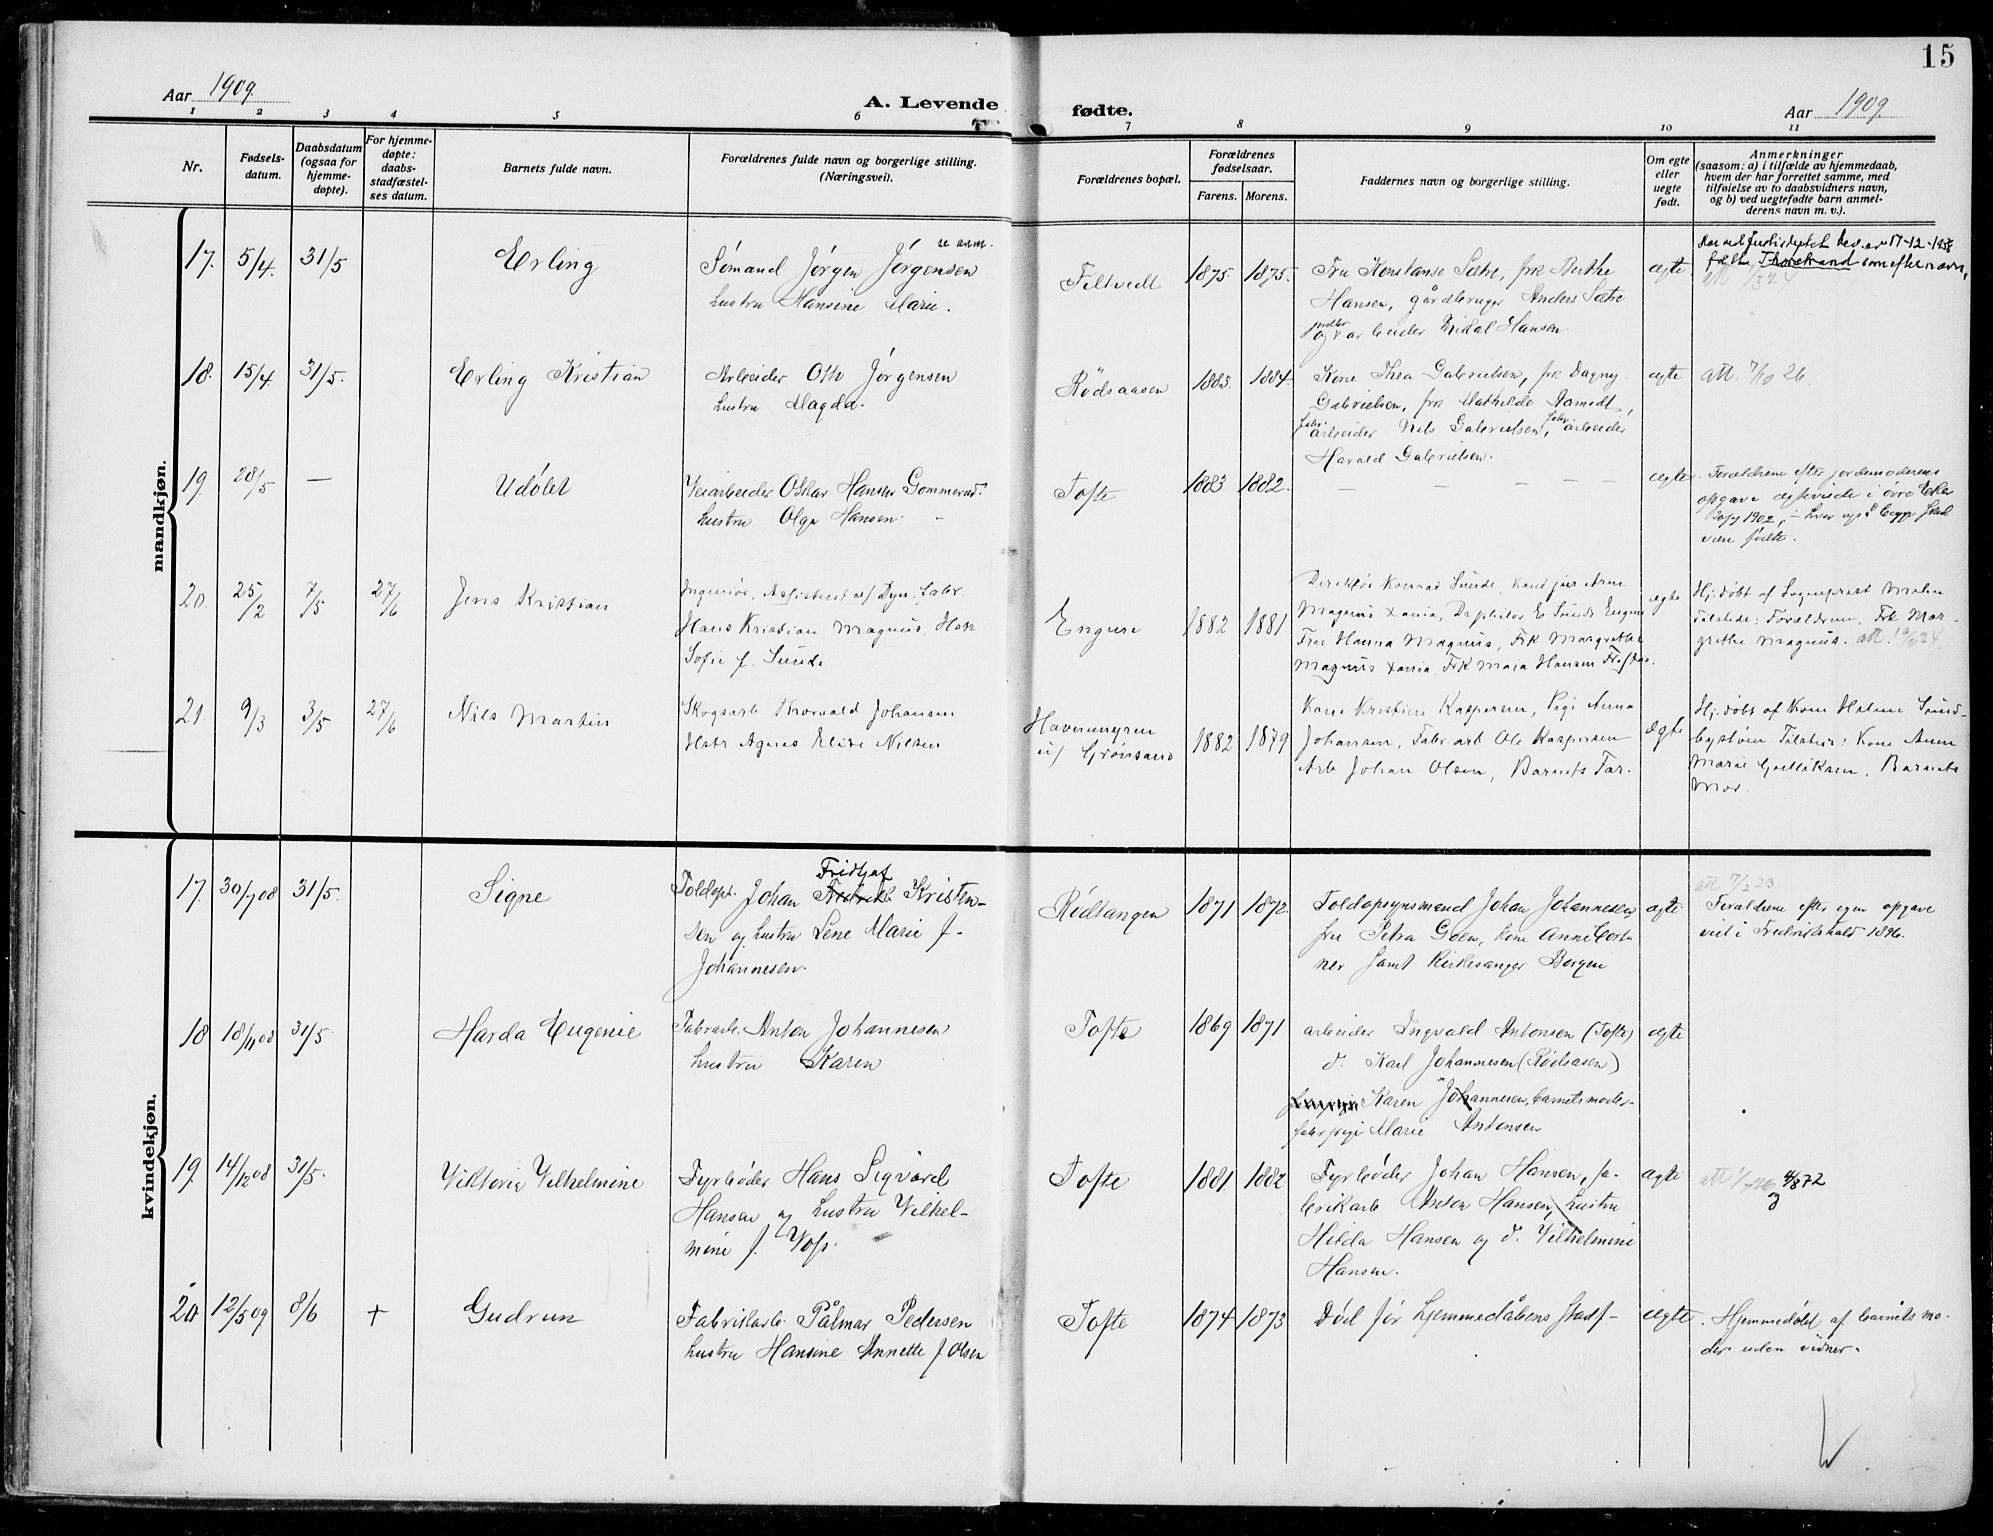 15
Aar 1909.
A. Levende fødte.
Aar 1909.
1 2 3 4 5 6 7 8 9 10 11
Nr.
Fødsels-
datum.
Daabsdatum
(ogsaa for
hjemme-
døpte).
For hjemme-
døpte:
daabs-
stadfæstel-
ses datum.
Barnets fulde navn.
Forældrenes fulde navn og borgerlige stilling.
(Næringsvei).
Forældrenes bopæl.
Forældrenes
fødselsaar.
Farens. Morens.
Faddernes navn og borgerlige stilling.
Om egte
eller
uegte
født.
Anmerkninger
(saasom: a) i tilfælde av hjemmedaab,
hvem der har forrettet samme, med
tilføielse av to daabsvidners navn,
og b) ved uegtefødte barn anmel-
derens navn m. v.).
mandkjøn.
17. 5/4. 31/5
Erling
se anm.
Sømand Jørgen Jørgensen
hustru Hansine Marie.
Filtvedt
1875. 1875.
Fru Konstanse Sætre, frk Berthe
Hansen, gårdbruger Anders Sætre
og arbeider Mikal Hansen.
ægte
som efternavn,
18. 15/4. 31/5.
Erling Kristian
Arbeider Otto Jørgensen
hustru Magda.
Rødsaasen
1883. 1884.
Kone Thea Gabrielsen, frk Dagny
Gabrielsen, frk Mathilde Aamodt,
fabr. arbeider Nils Gabrielsen, fabr. arbeider
Harald Gabrielsen.
ægte
att. 7/10 26.
19. 28/5 —
Udøbt
Veiarbeider Oskar Hansen Gommerud.
hustru Olga Hansen.
Tofte
1883 1882.
— — — — — —
ægte.
Forældrene efter jordemoderens
opgave ægteviede i øvre Eker
1902, – hver også begge skal
være fødte.
20. 25/2 7/5 27/6
Jens Kristian
Ingeniør, Assistent v/ Dyn. fabr.
Hans Kristian Magnus, Hstr
Sofie f. Sunde
Engene
1882 1881
Direktør Konrad Sunde, Arne
Magnus Xania, Dr philos E Sunde Engene
Fru Hanna Magnus, Frk Margrethe
Magnus Xania, Frk Maia Hansen
ægte
Hj.døbt af Sogneprest
Tilstede: Forældrene, Frk Mar-
grethe Magnus.
21 9/3 3/5 27/6
Nils Martin
Skogsarb Thorvald Johansen
Hstr Agnes Elise Nilsen
Havnemyren
u/ Grønsand
1882 1879
Kone Kristine Kaspersen, Pige Anna
Johansen, Fabr arb Ole Kaspersen
Arb Johan Olsen, Barnets Far.
ægte
Hj.døbt af Kone Helene Sund-
byström Tilstede: Kone Anne
Marie Gulliksen, Barnets
Mor.
kvindekjøn.
17. 30/7 08 31/5.
Signe
Fridtjof
Toldopt. Johan Fredrik Kristen-
sen og hustru Lene Marie f.
Johannesen.
Rødtangen
1871 1872.
Toldopsynsmand Johan Johannesen
fru Petra Goen, kone Anne
samt kirkesanger Borgen
ægte
att 7/2 23.
Forældrene efter egen opgave
viet i Fredrikshald 1896.
18 18/11 08 31/5.
Harda Eugenie
Fabrarb. Anton Johannesen
hustru Karen
Tofte
1869 1871
arbeider Ingvald Antonsen (Tofte)
d. Karl Johannesen (Rødsasen)
Karen Johannesen, barnets moder.
fabr pige Marie Antonsen
ægte
19. 14/12 08 31/5.
Viktoria Vilhelmine
Fyrbøder Hans Sigvard
Hansen og hustru Vilhel-
mine f. Voss.
Tofte
1881 1882
Fyrbøder Johan Hansen, fa-
brikarb Anton Hansen, hustru
Hilda Hansen og d. Vilhelmine
Hansen.
ægte
og 4/8 72
20. 12/5 09 8/6 +
Gudrun
Fabrikarb. Pålmar Pedersen
hustru Hansine Annette f. Olsen
Tofte
1874 1873.
Død før hjemmedåbens stadf-
ægte
Hjemmedøbt af barnets mo-
der uden vidner.